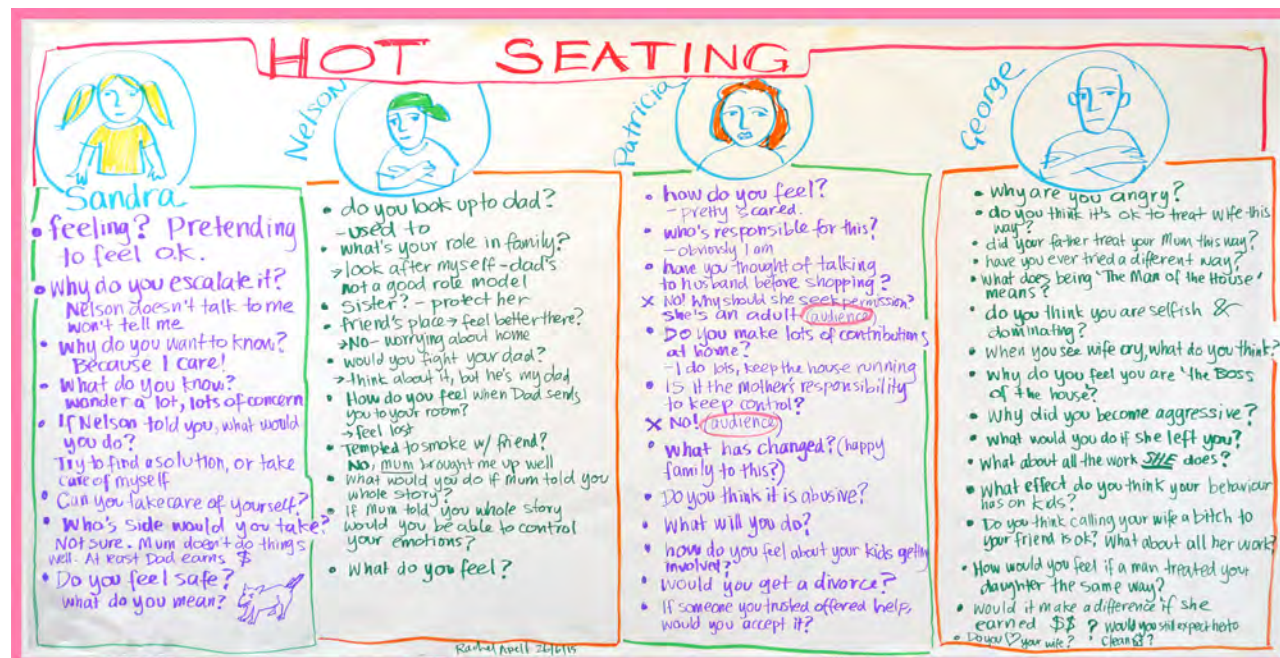 HOT SEATING
Sandra
• feeling? Pretending
to feel ok.
• Why do you escalate it?
Nelson doesn't talk to me
won't tell me
• Why do you want to know?
Because I care!
• What do you know?
wonder a lot, lots of concern
• If Nelson told you, what would
you do?
Try to find a solution, or take
care of myself
• Can you take care of yourself?
• Who's side would you take?
Not sure. Mum doesn't do things
well. At least Dad earns $
• Do you feel safe?
what do you mean?
Nelson
• do you look up to dad?
- used to
• what's your role in family?
→ look after myself - dad's
not a good role model
• Sister? - protect her
• friend's place → feel better there?
→ No - worrying about home
• would you fight your dad?
→ think about it, but he's my dad
• How do you feel when Dad sends
you to your room?
→ feel lost
• Tempted to smoke w/ friend?
No, mum brought me up well
• What would you do if mum told you
whole story?
• If mum told you whole story
would you be able to control
your emotions?
• what do you feel?
Patricia
• how do you feel?
- pretty scared.
• who's responsible for this?
- obviously I am
• have you thought of talking
to husband before shopping?
X No! Why should she seek permission?
she's an adult (audience)
• Do you make lots of contributions
at home?
- I do lots, keep the house running
• IS it the mother's responsibility
to keep control?
X No! (audience)
• What has changed? (happy
family to this?)
• Do you think it is abusive?
• What will you do?
• how do you feel about your kids getting
involved?
• Would you get a divorce?
• If someone you trusted offered help,
would you accept it?
George
• Why are you angry?
• do you think it's ok to treat wife this
way?
• did your father treat your Mum this way?
• have you ever tried a different way?
• What does being 'The Man of the House'
means?
• do you think you are selfish &
dominating?
• When you see wife cry, what do you think?
• Why do you feel you are 'the Boss
of the house?
• Why did you become aggressive?
• what would you do if she left you?
• What about all the work SHE does?
• What effect do you think your behaviour
has on kids?
• Do you think calling your wife a bitch to
your friend is ok? What about all her work?
• How would you feel if a man treated your
daughter the same way?
• would it make a difference if she
earned $$ ? Would you still expect her to
• Do you ♡ your wife? clean ?
Rachel 26/6/15